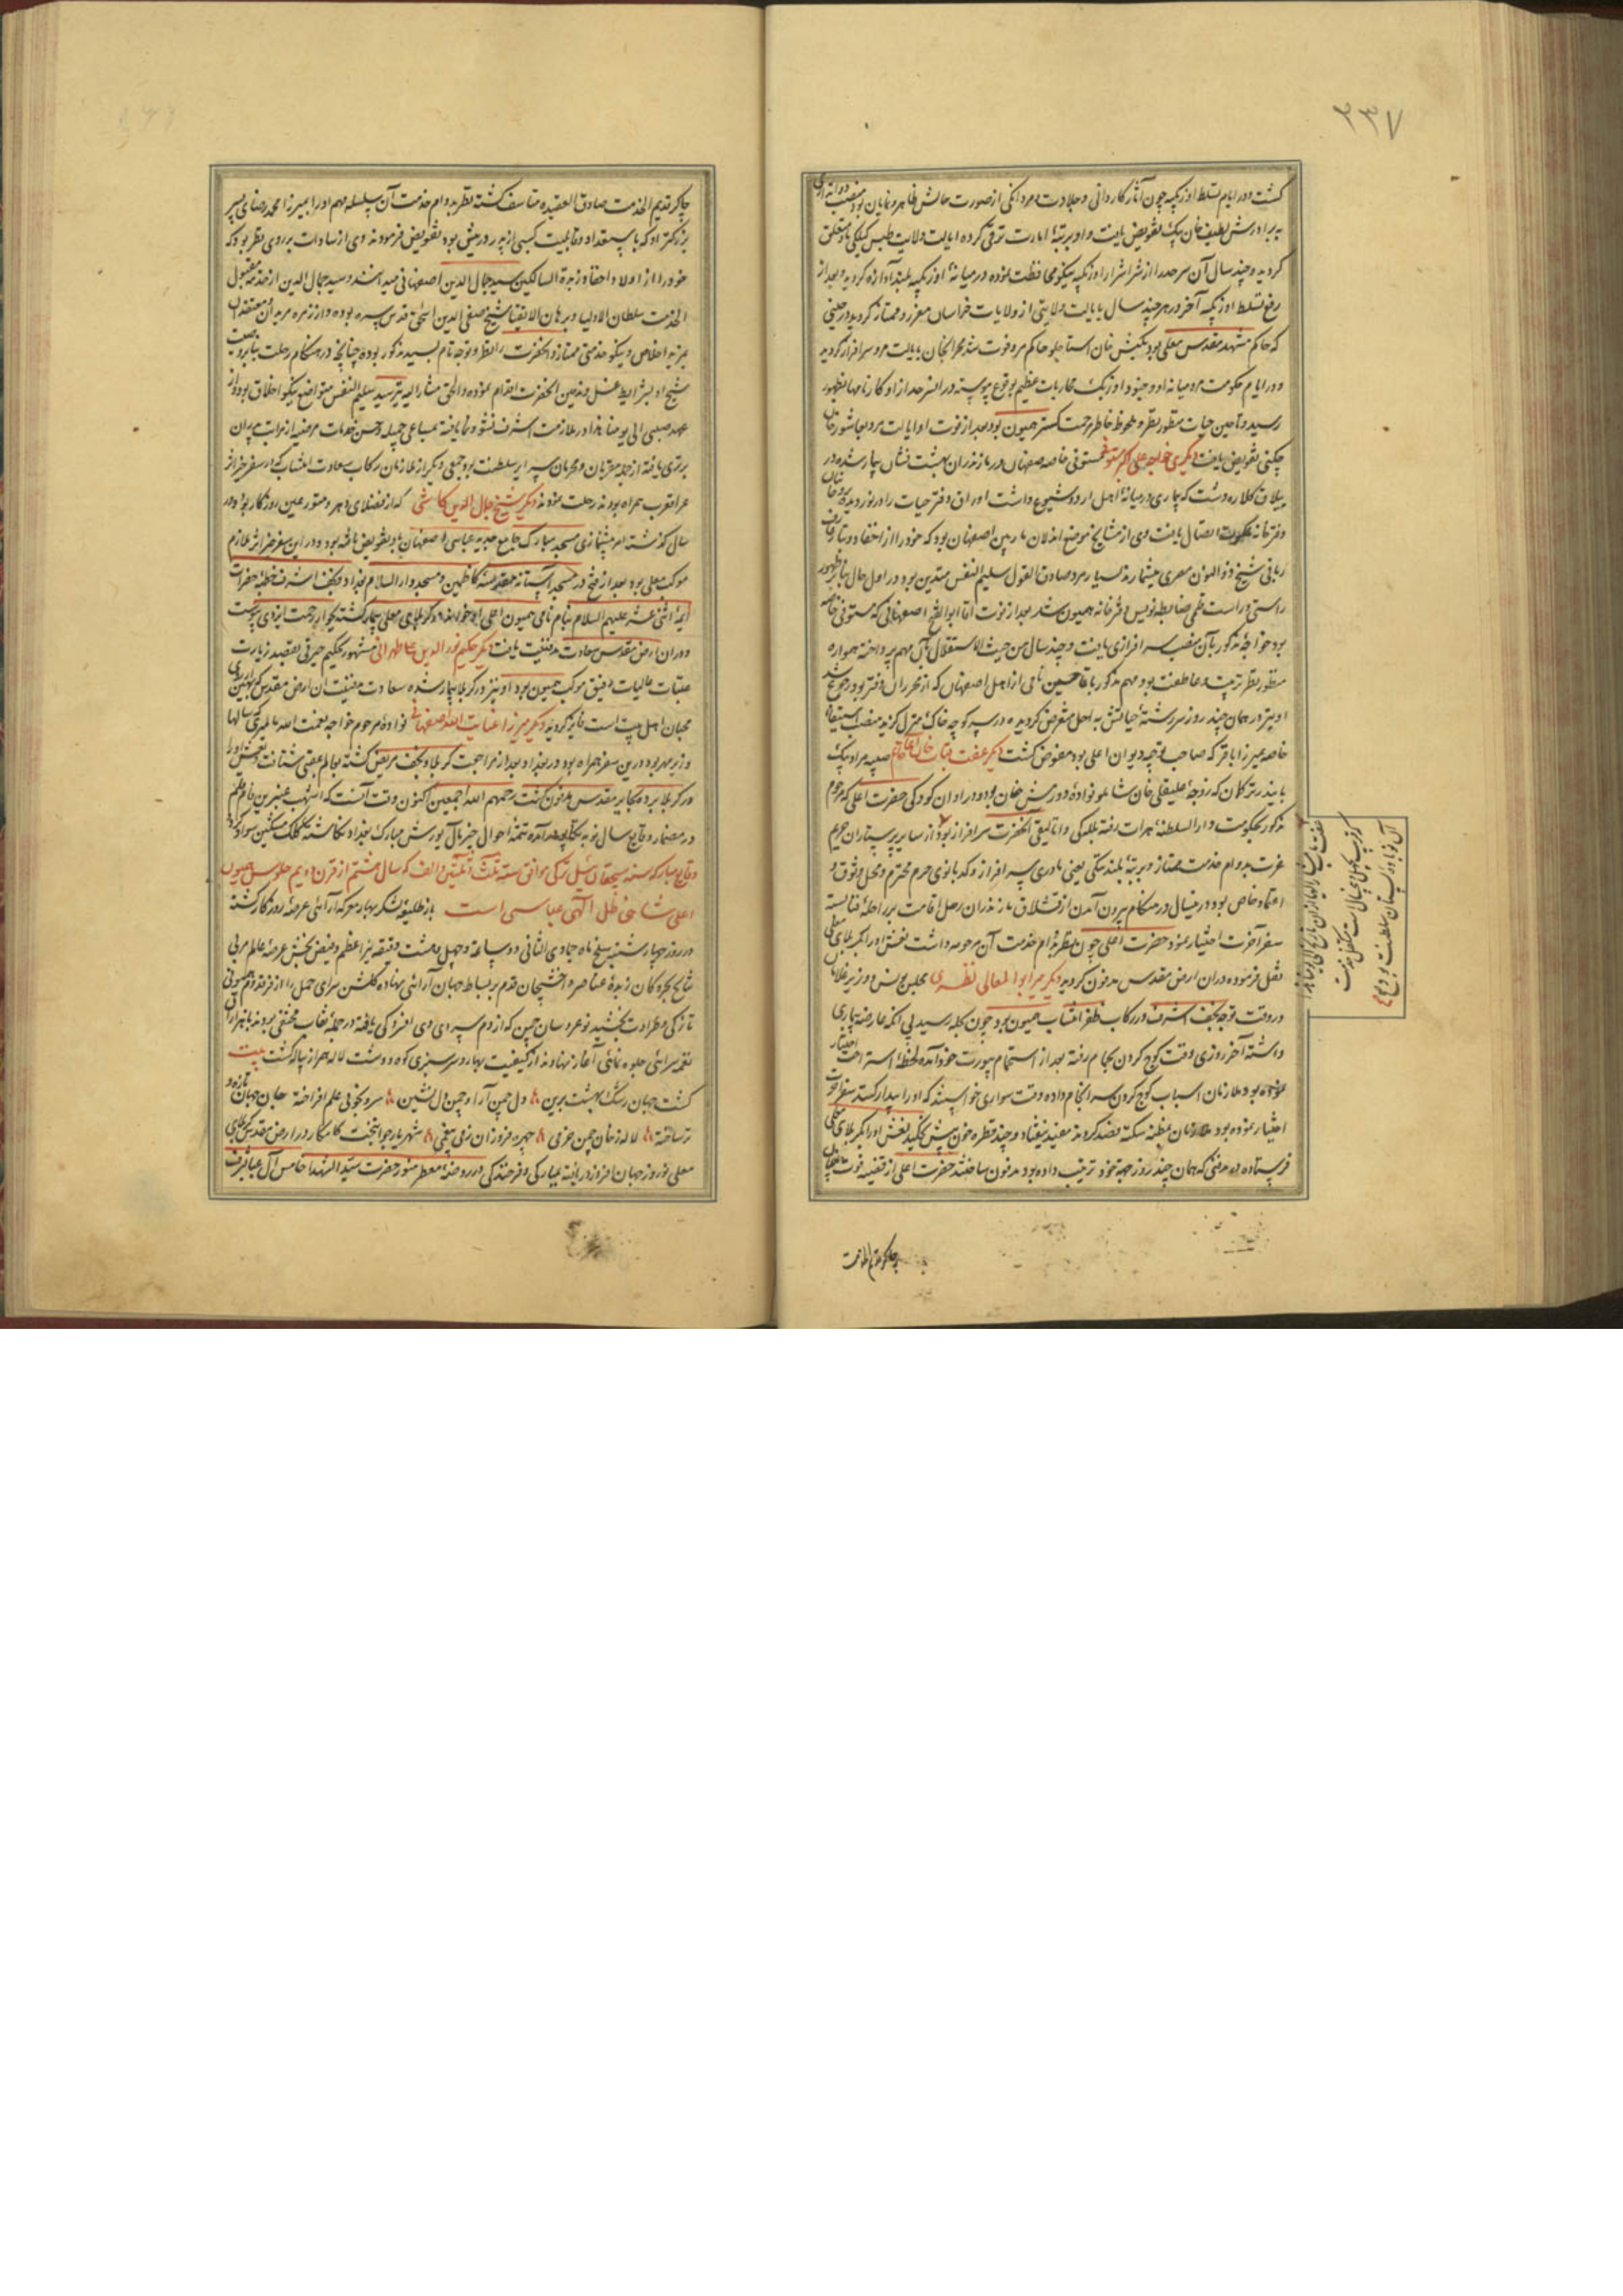 ۳۳۷
گشت و در ایام تسلط اوزبکیه چون آثار کاردانی و جلادت و مردانگی از صورت حالش ظاهر و نمایان بود منصب
به برادرش لطیف خان بیک تفویض یافت و او برتبهٔ امارت ترقی کرده ایالت ولایت طبس گیلکی باو متعلق
گردید و چند سال آن سرحد را از شر اشرار اوزبکیه نیکو محافظت نموده در میانهٔ اوزبکیه بلند آوازه گردید و بعد از
رفع تسلط اوزبکیه آخر در هر چند سال بایالت ولایتی از ولایات خراسان معزز و ممتاز گردید در حینی
که حاکم مشهد مقدس معلی بود بکتش خان استاجلو حاکم مرو فوت شد محراب خان بایالت مرو سرافراز گردید
و در ایام حکومت مرو میانهٔ او و جنود اوزبک محاربات عظیم بوقوع پیوسته در آن سرحد از او کارنامها بظهور
رسید و تا حین حیات منظور نظر و ملحوظ خاطر مرحمت گستر همیون بود بعد از فوت او ایالت مرو بعاشور خان
چگنی تفویض یافت دیگری خواجه علی اکبر مستوفی خاصه صفهان در مازندران بهشت نشان بیمار شده در
ییلاق کلاره دشت که بیماری در میانهٔ اهل اردو شیوع داشت اوراق دفتر حیات را در نوردیده
دفترخانه اتصال یافت وی از مشایخ موضع اندلان ماربین اصفهان بود که خود را از احفاد
ربانی شیخ ذوالنون مصری میشمارند بسیار مرد صادق القول سلیم النفس متدین بود در اول حال
راستی و راست قلمی ضابطه نویس دفترخانه همیون شد بعد از فوت آقا ابوالفتح اصفهانی که مستوفی خاصه
بود خواجهٔ مذکور بآن منصب سرافرازی یافت و چند سال من حیث الاستقلال بآن مهم پرداخته همواره
منظور نظر تربیت و عاطفت بود مهم مذکور باقا حسین نامی از اهل اصفهان که از محرران دفتر بود رجوع شد
او نیز در همان چند روز سررشتهٔ حیاتش به اجل منقرض گردیده در سر کوچه خاک منزل گزید منصب استیفاء
خاصه بمیرزا باقر که صاحب توجیه دیوان اعلی بود مفوض گشت دیگر عفت مآب خان آغا خانم صبیه مراد بیک
بایندر ترکمان که زوجهٔ علیقلی خان شاملو نوادهٔ دورمش خان بود و در اوان کودکی حضرت اعلی که مرحوم
مذکور بحکومت دارالسلطنهٔ هرات رفته بللگی و اتالیقی آنحضرت سرافراز بود از سایر پرستاران حرم
عزت بدوام خدمت ممتاز و برتبهٔ بلند ننگی یعنی مادری سرافراز و کدبانوی حرم محترم و محل وثوق و
اعتماد خاص بود در منسال در هنگام بیرون آمدن از قشلاق مازندران رحل اقامت بر راحلهٔ فنا بسته
سفر آخرت اختیار نمود حضرت اعلی چون نظر بدوام خدمت آن مرحومه داشت نعش او را بکربلای معلی
نقل فرموده در ان ارض مقدس مدفون گردید دیگر میر ابوالمعالی نطنزی مجلس نویس و وزیر غلامان
در وقت توجه نجف اشرف در رکاب ظفر انتساب همیون بود چون بحله رسید بی آنکه عارضه بیماری
داشته آخر روزی وقت کوچ کردن بحمام رفته بعد از استحمام بیورت خود آمده لحظهٔ استراحت اختیار
نموده بود ملازمان اسباب کوچ کردن سرانجام داده وقت سواری خواستند که او را بیدار کنند سفر آخرت
اختیار نموده بود ملازمان بمظنه سکته فصد کردند مفید نیفتاد و چند قطره خون بیش نچکید نعش او را بکربلای معلی
فرستاده در مدفنی که همان چند روز جهة خود ترتیب داده بود مدفون ساختند حضرت اعلی از قضیه فوت
چاکر قدیم الخدمت
چاکر قدیم الخدمت صادق العقیده متأسف گشته نظر بدوام خدمت آن سلسله مهم او را بمیرزا محمد رضای پسر
بزرگتر او که باستعداد و قابلیت کسبی از پدر در پیش بود تفویض فرمودند وی از سادات بروی نظر بود که
خود را از اولاد و احفاد زبدة السالکین سید جمال الدین اصفهانی میدانند و سید جمال الدین از خدمه مقبول
الخدمت سلطان الاولیا و برهان الاتقیا شیخ صفی الدین اسحق قدس سره بوده و از زمره مریدان و معتقدان
بمزید اخلاص و نیکو خدمتی ممتاز و آنحضرت را نظر و توجه تام بسید مذکور بوده چنانچه در هنگام رحلت بنا بر وصیت
شیخ او بشرایط غسل و تدفین آنحضرت اقدام نموده و الحق مشار الیه نیز سید سلیم النفس متواضع نیکو اخلاق بود و از
عهد صبی الی یومنا هذا در ملازمت اشرف نشو و نما یافته بمساعی جمیله و حسن خدمات مرضیه از مراتب پدران
برتری یافته از جمله مقربان و محرمان سریر سلطنت بود جمعی دیگر از ملازمان رکاب سعادت انتساب که در سفر خیر اثر
عراق عرب همراه بودند رحلت نمودند دیگر شیخ جلال الدین کاشی که از فضلای دهر و متورعین روزگار بود و در
سال گذشته امر پیشنمازی مسجد مبارک جامع جدید عباسی اصفهان باو تفویض یافته بود و در این سفر خیر اثر ملازم
موکب معلی بود بعد از فتح در مسجد آستانه مقدسه کاظمین و مسجد دارالسلام بغداد و نجف اشرف خطبه حضرات
ائمه اثنی عشر علیهم السلام بنام نامی همیون اعلی او خوانده در کربلای معلی بیمار گشته بجوار رحمت ایزدی پیوست
و در ان ارض مقدس سعادت مدفنیت یافت دیگر حکیم نورالدین علی طهرانی مشهور بحکیم حیرتی بقصد زیارت
عتبات عالیات رفیق موکب همیون بود او نیز در کربلا بیمار شده سعادت مدفنیت ان ارض مقدس که آرزوی
محبان اهل بیت است فایز گردید دیگر میرزا عنایت الله اصفهانی نوادهٔ مرحوم خواجه نعمت الله سالها
وزیر بود و درین سفر همراه بود در بغداد بعد از مراجعت کربلا و نجف مریض گشته بعالم عقبی شتافت نعش او را
در کربلا برده بجایر مقدس مدفون گشت رحمهم الله اجمعین اکنون وقت آنست که اشهب عنبرین فام قلم
در مضمار وقایع سال نو به تکاپو در آمده تتمهٔ احوال خیر مآل یورش مبارک بغداد نگاشته کلک مشکین سواد گردد
وقایع مبارکه سنه سیچقان ئیل ترکی موافق سنه ثلث و ثلثین و الف که سال هشتم از قرن دویم جلوس همیون
اعلی شاهی ظل الهی عباسی است باز طلیعه لشکر بهار معرکه آرائی عرصهٔ روزگار گشته
در روز چهارشنبه سلخ ماه جمادی الثانی دو ساعت و چهل و هشت دقیقه نیر اعظم و فیض بخش عرصهٔ عالم مربی
نتایج بحر و کان زبدهٔ عناصر و اخشیجان قدم بر بساط جهان آرائی نهاده گلشن سرای حمل را از فر قدوم همیونی
تازگی و طراوت بخشید نوعروسان چمن که از دم سردی دی افسردگی یافته در جملهٔ نقاب مختفی بودند با هزاران
نغمه سرائی جلوه نمائی آغاز نهادند از کیفیت بهار و سرسبزی کوه و دشت لاله همراز پیاله گشت بیت
گشت جهان رشک بهشت برین دل چمن آرا و چمن دلنشین سرو بخوبی علم افراخته جان جهان تازه و
تر ساخته لاله رخان چمن خرمی چهره فروزان زمی بیغمی شهریار جوانبخت کامکار در ارض مقدس کربلای
معلی نوروز جهان افروز دریافته بمبارکی و فرخندگی در روضهٔ معطر منور حضرت سید الشهدا خامس آل عبا شرف